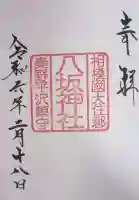 奉拝
相模國大住郡
八坂神社
秦野平沢鎮守
令和六年二月十八日